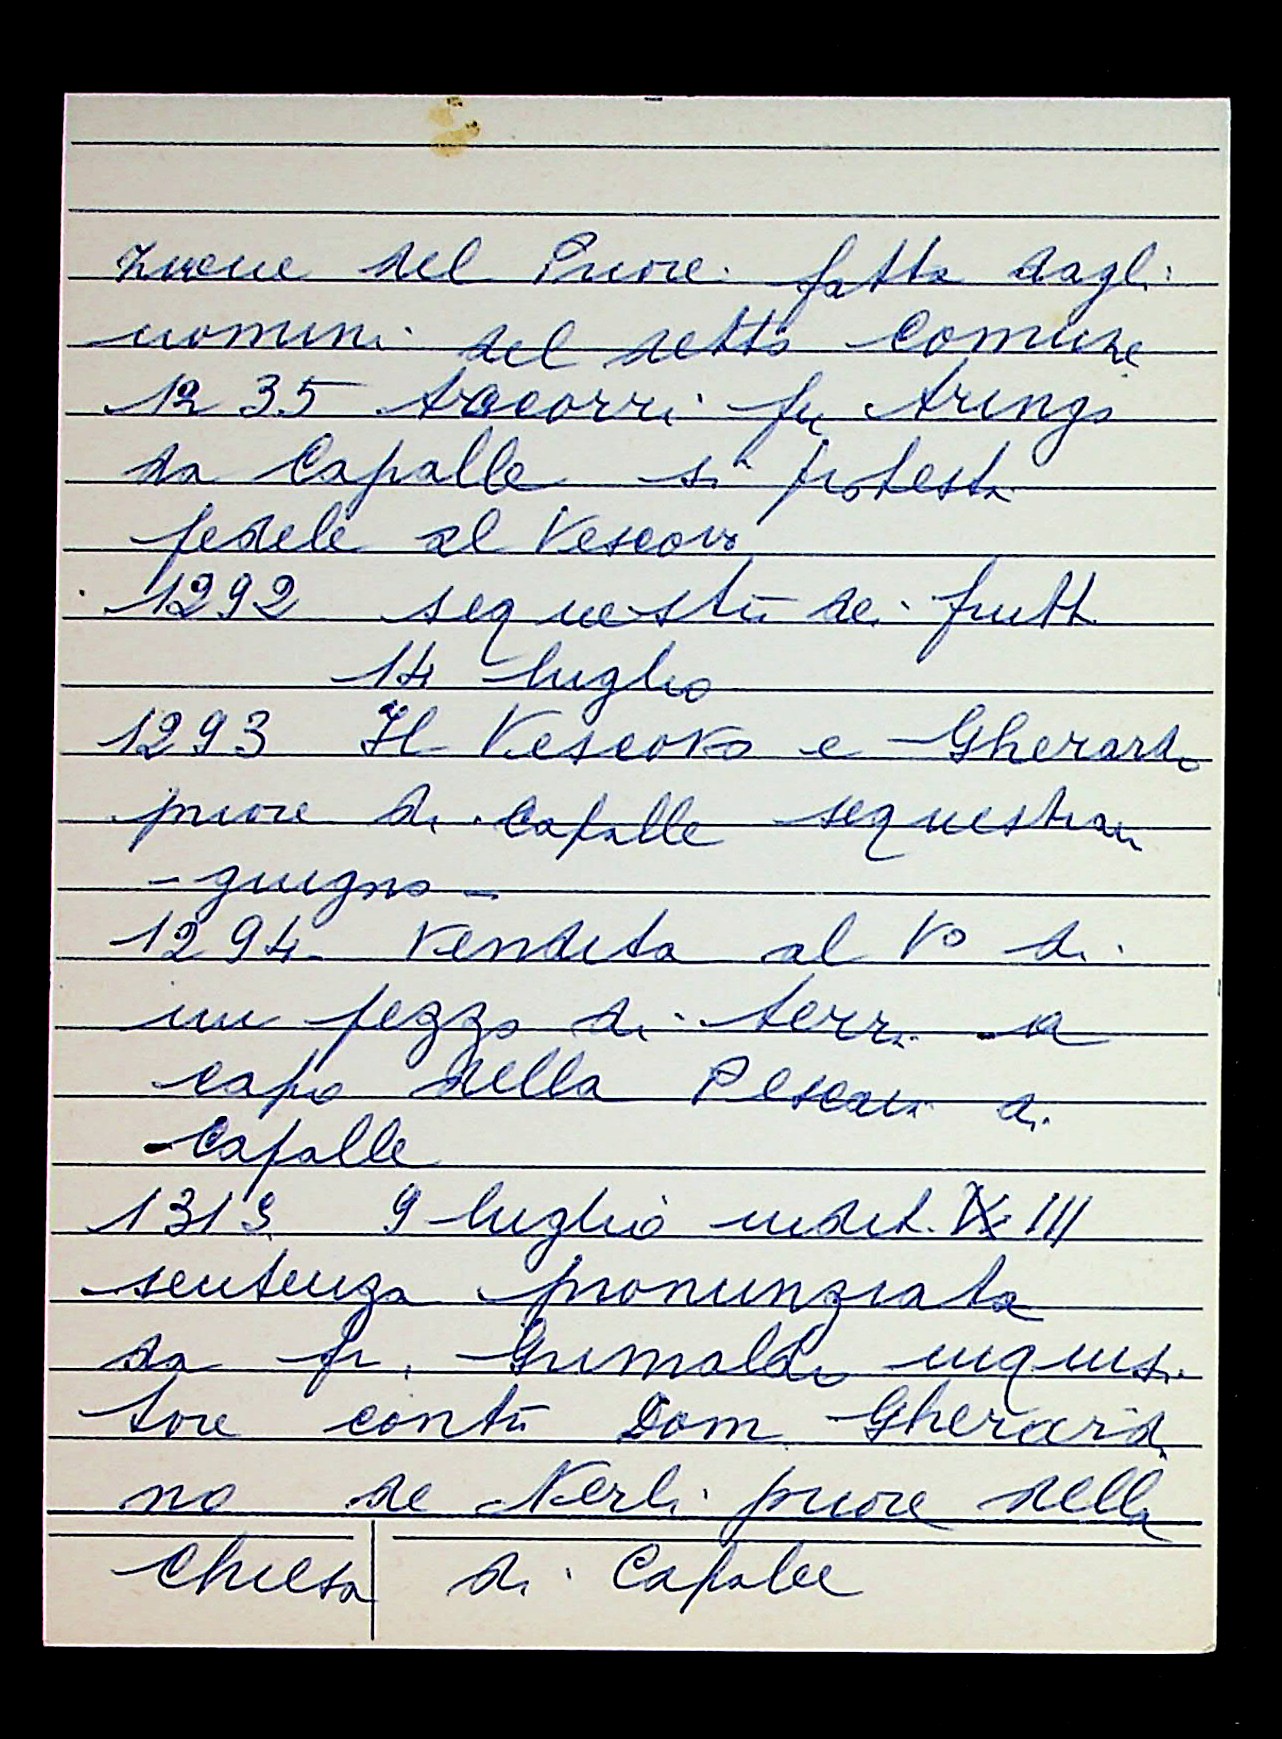 zione del Priore fatta dagli
uomini del detto comune
1235 Accorri fu Aringo
da Capalle si protesta
fedele al Vescovo
1292 sequestro dei frutti
14 luglio
1293 Il Vescovo e Gherardo
priore di Capalle sequestran
- giugno -
1294 Vendita al Vo di
un pezzo di terra a
capo della Pescaia di
Capalle
1313 9 luglio indit. III
sentenza pronunziata
da fr. Grimaldo inquisi
tore contro Dom. Gherardi
no de Nerli priore della
Chiesa di Capalle